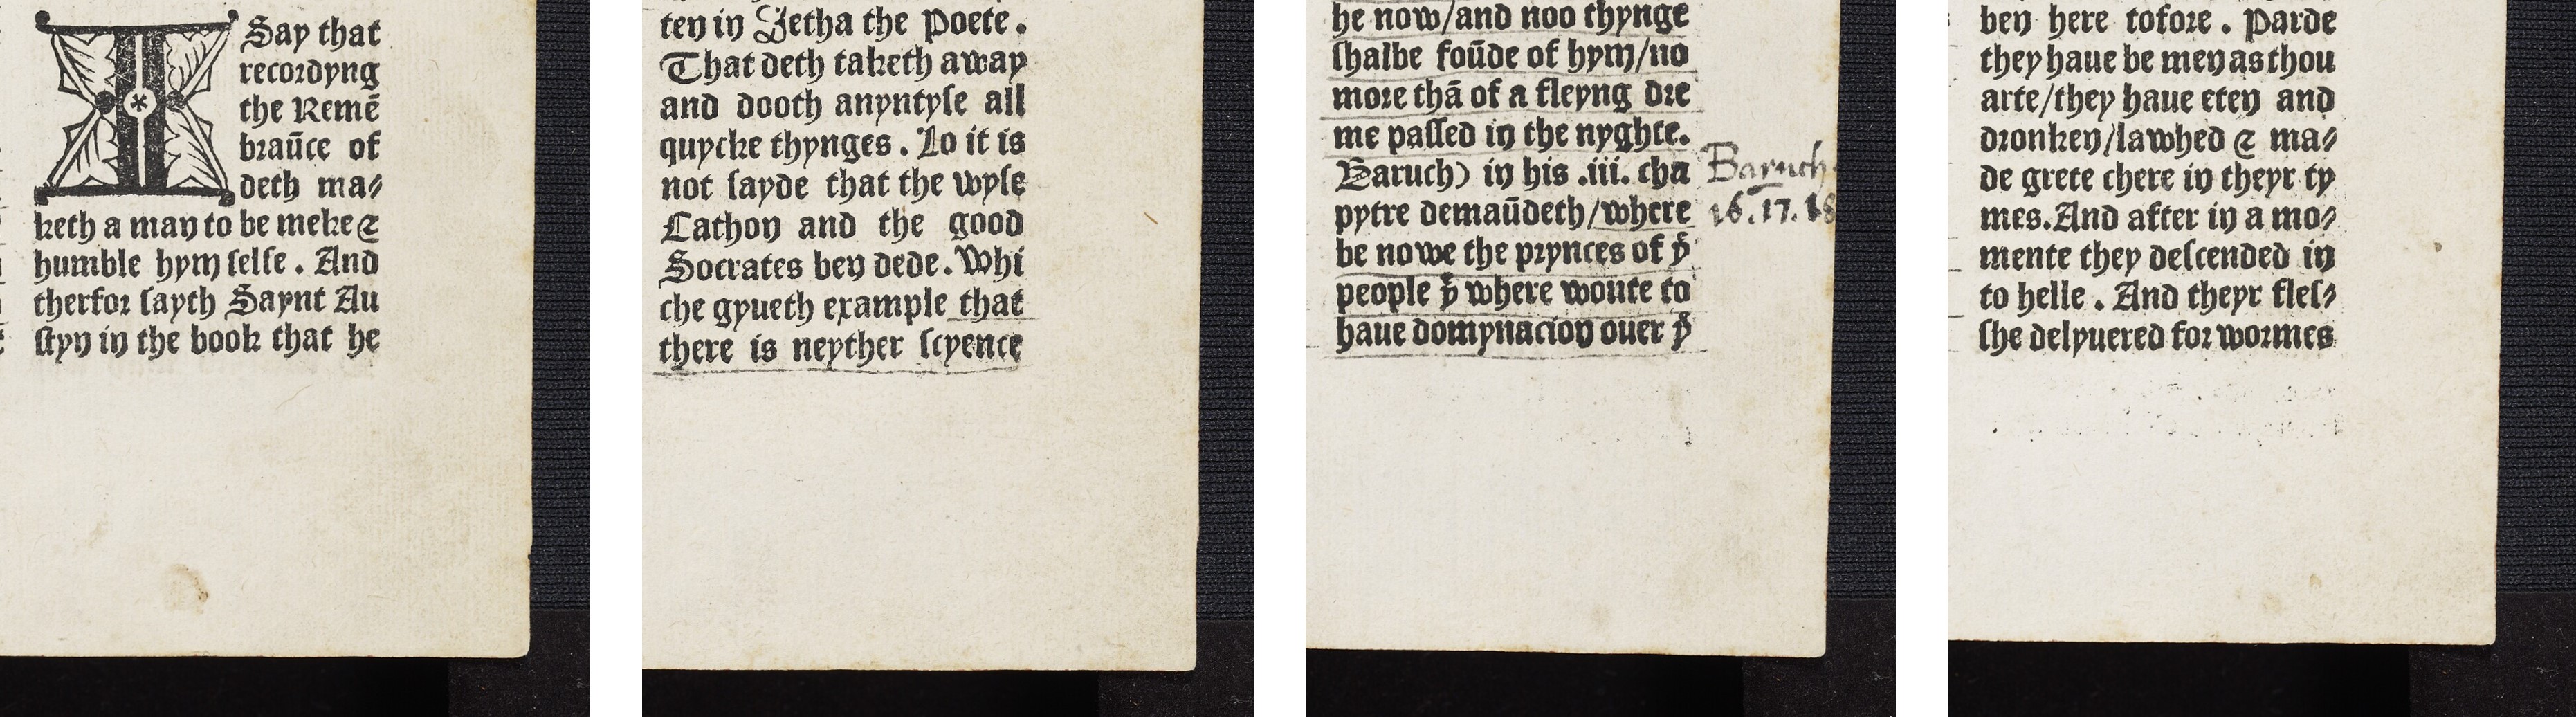 I Say that
recordyng
the Remē
braūce of
deth ma⸗
keth a man to be meke &
humble hym selfe . And
therfor sayth Saynt Au
styn in the book that he
ten in Jetha the Poete .
That deth taketh away
and dooth anyntyse all
quycke thynges . Lo it is
not sayde that the wyse
Cathon and the good
Socrates ben dede . Whi
che gyueth example that
there is neyther scyence
he now/and noo thynge
shalbe foūde of hym/no
more thā of a fleyng dre
me passed in the nyghte.
Baruch) in his .iii. cha
pytre demaūdeth/where
be nowe the prynces of þͤ
people þͭ where wonte to
haue domynacion ouer þͤ
Baruch
16.17.18
ben here tofore . Parde
they haue be men as thou
arte/they haue eten and
dronken/lawhed & ma⸗
de grete chere in theyr ty
mes. And after in a mo⸗
mente they descended in
to helle . And theyr fles⸗
she delyuered for wormes